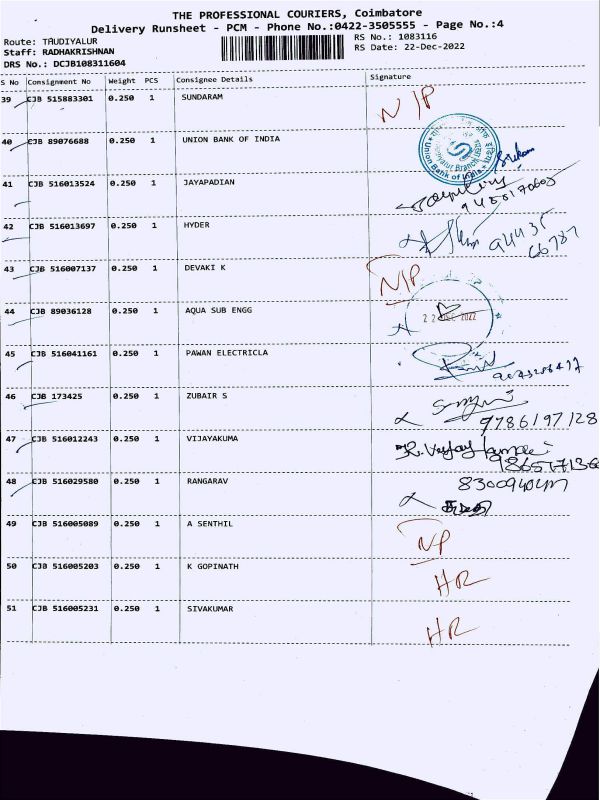 THE PROFESSIONAL COURIERS, Coimbatore
Delivery Runsheet - PCM - Phone No.:0422-3505555 - Page No.:4
Route: TAUDIYALUR
RS No.: 1083116
Staff: RADHAKRISHNAN
RS Date: 22-Dec-2022
DRS No.: DCJB108311604
S No Consignment No Weight PCS Consignee Details Signature
39 CJB 515883301 0.250 1 SUNDARAM N/P
40 CJB 89076688 0.250 1 UNION BANK OF INDIA
Union Bank of India
41 CJB 516013524 0.250 1 JAYAPADIAN
42 CJB 516013697 0.250 1 HYDER 94435
66787
43 CJB 516007137 0.250 1 DEVAKI K N/P
44 CJB 89036128 0.250 1 AQUA SUB ENGG
22 DEC 2022
45 CJB 516041161 0.250 1 PAWAN ELECTRICLA
46 CJB 173425 0.250 1 ZUBAIR S
9786197128
47 CJB 516012243 0.250 1 VIJAYAKUMA
48 CJB 516029580 0.250 1 RANGARAV
49 CJB 516005089 0.250 1 A SENTHIL NP
50 CJB 516005203 0.250 1 K GOPINATH HR
51 CJB 516005231 0.250 1 SIVAKUMAR HR